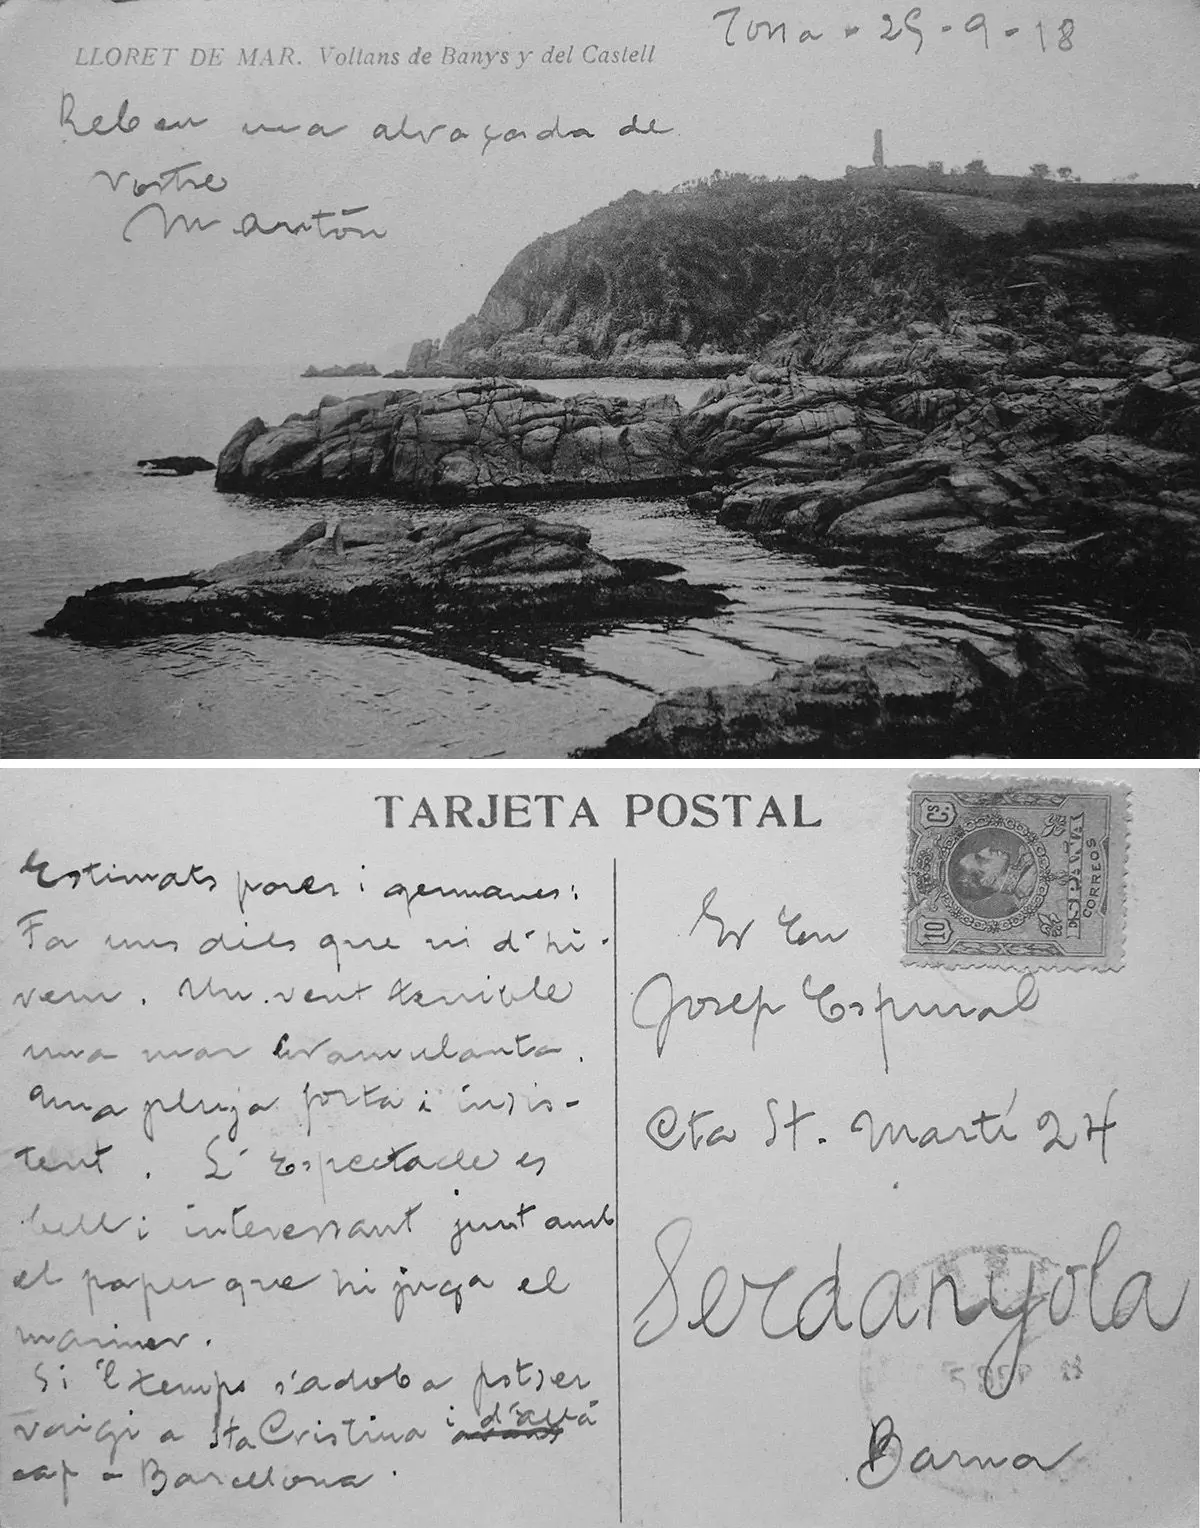 LLORET DE MAR. Voltans de Banys y del Castell
Tossa - 25-9-18
Reben una abraçada de
vostre
Mantón
TARJETA POSTAL
Estimats pares i germanes:
Fa uns dies que ni d'hi-
vern. Un vent terrible
una mar bramulanta.
Una pluja forta i insis-
tent. L'Espectacle es
bell i interessant junt amb
el paper que hi juga el
mariner.
Si 'l temps s'adoba potser
vaigi a Sta Cristina i d'allá
cap a Barcellona.
10 Cs
ESPAÑA
CORREOS
Sr En
Josep Espinal
Cta St. Martí 24
Serdanyola
Barna
SEP